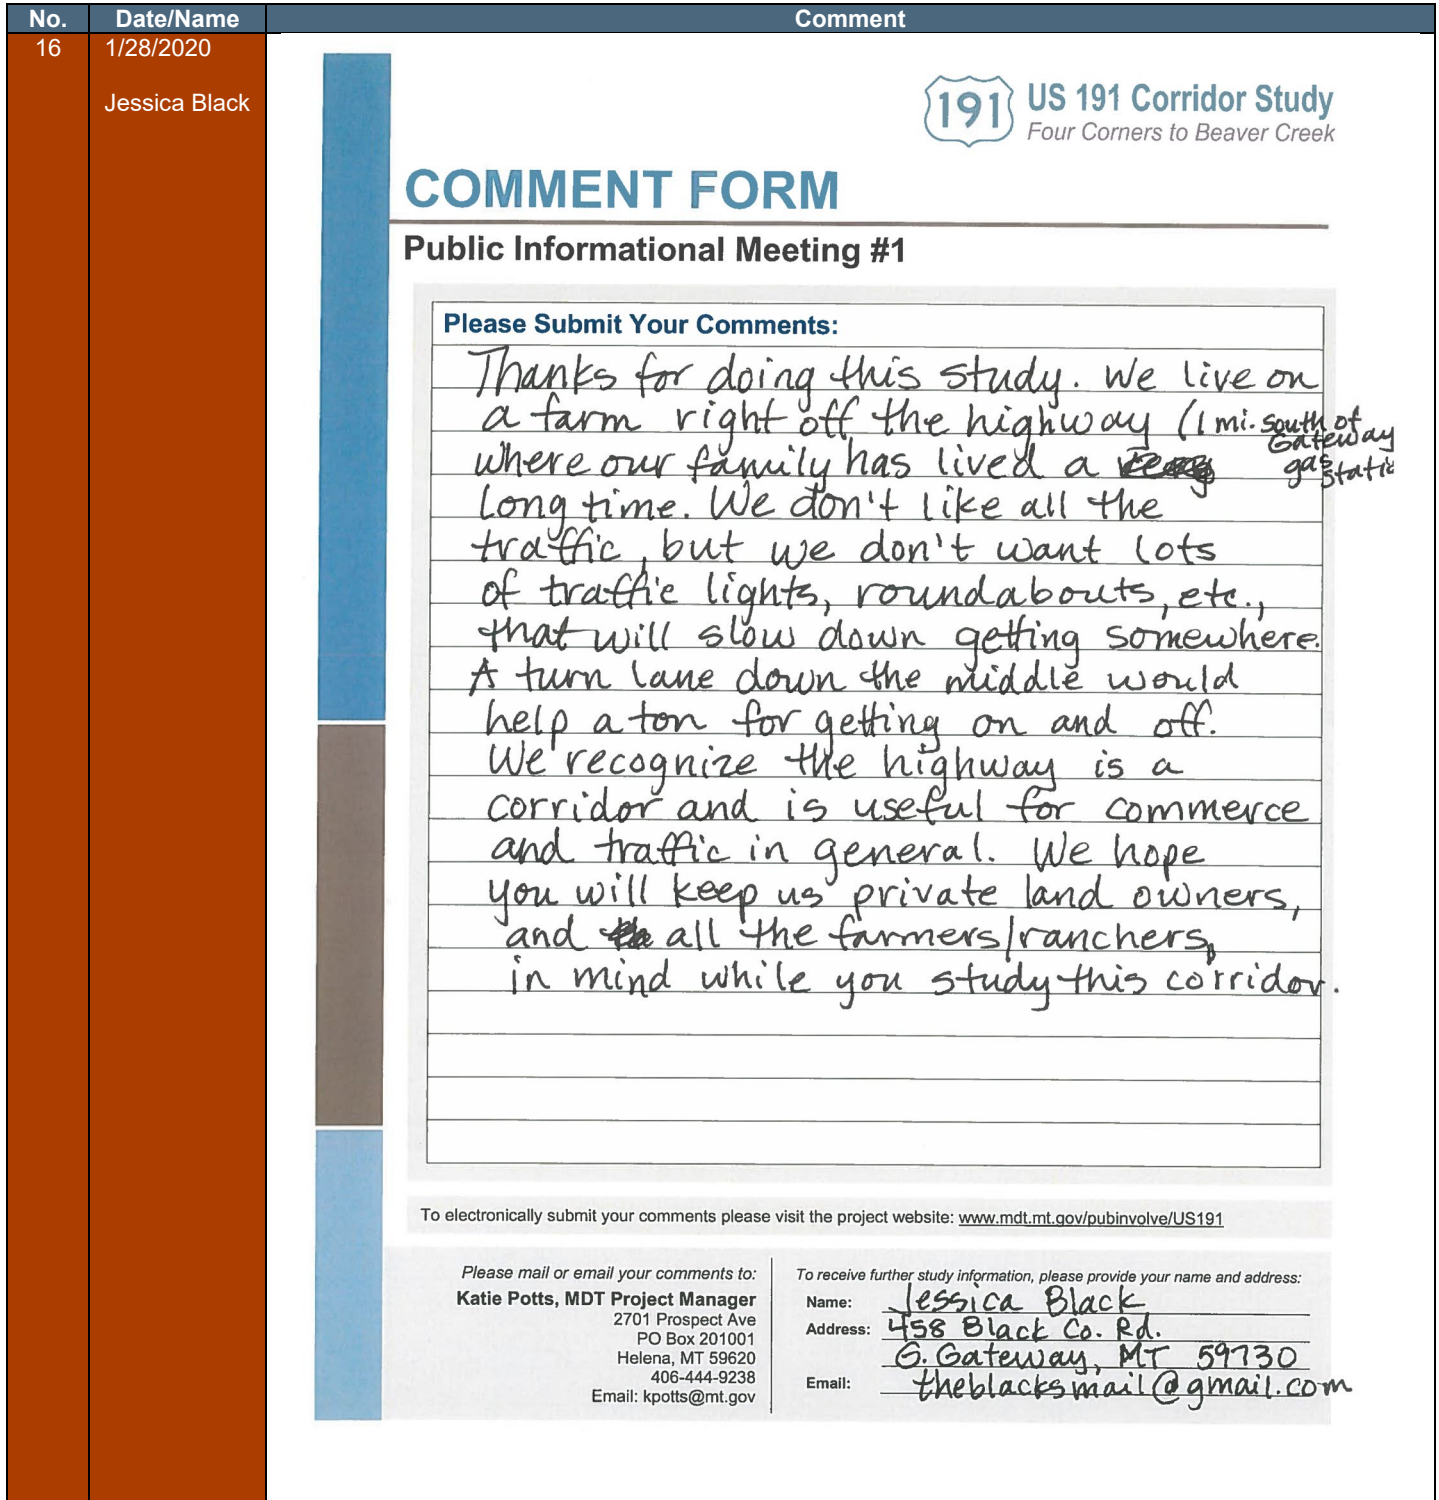 No. Date/Name Comment
16 1/28/2020
Jessica Black
191 US 191 Corridor Study
Four Corners to Beaver Creek
COMMENT FORM
Public Informational Meeting #1
Please Submit Your Comments:
Thanks for doing this study. We live on
a farm right off the highway (1 mi. south of
Gateway
where our family has lived a very
gas statio
long time. We don't like all the
traffic, but we don't want lots
of traffic lights, roundabouts, etc.,
that will slow down getting somewhere.
A turn lane down the middle would
help a ton for getting on and off.
We recognize the highway is a
corridor and is useful for commerce
and traffic in general. We hope
you will keep us private land owners,
and all the farmers/ranchers,
in mind while you study this corridor.
To electronically submit your comments please visit the project website: www.mdt.mt.gov/pubinvolve/US191
Please mail or email your comments to:
Katie Potts, MDT Project Manager
2701 Prospect Ave
PO Box 201001
Helena, MT 59620
406-444-9238
Email: kpotts@mt.gov
To receive further study information, please provide your name and address:
Name: Jessica Black
Address: 458 Black Co. Rd.
G. Gateway, MT 59730
Email: theblacksmail@gmail.com